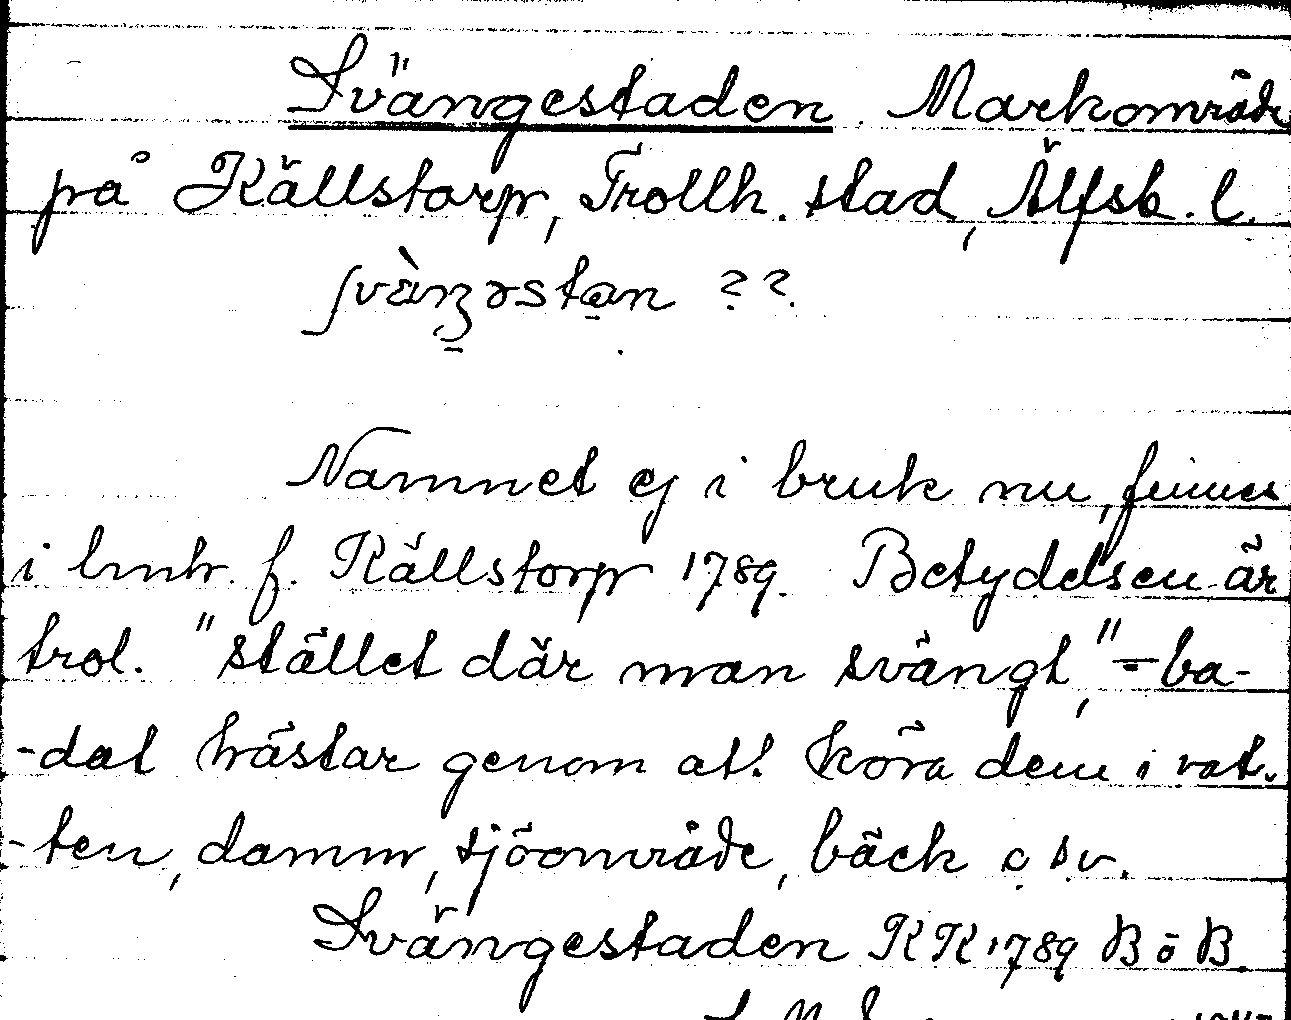 Svängestaden. Markområde
på Källstorp, Trollh. stad, Älfsb. l.
svàŋəstan ??
Namnet ej i bruk nu, finnes
i lmhr. f. Källstorp 1789. Betydelsen är
trol. "stället där man svängt," = ba-
-dat hästar genom att köra dem i vat-
-ten, damm, sjöområde, bäck o s v.
Svängestaden KK 1789 B ö B